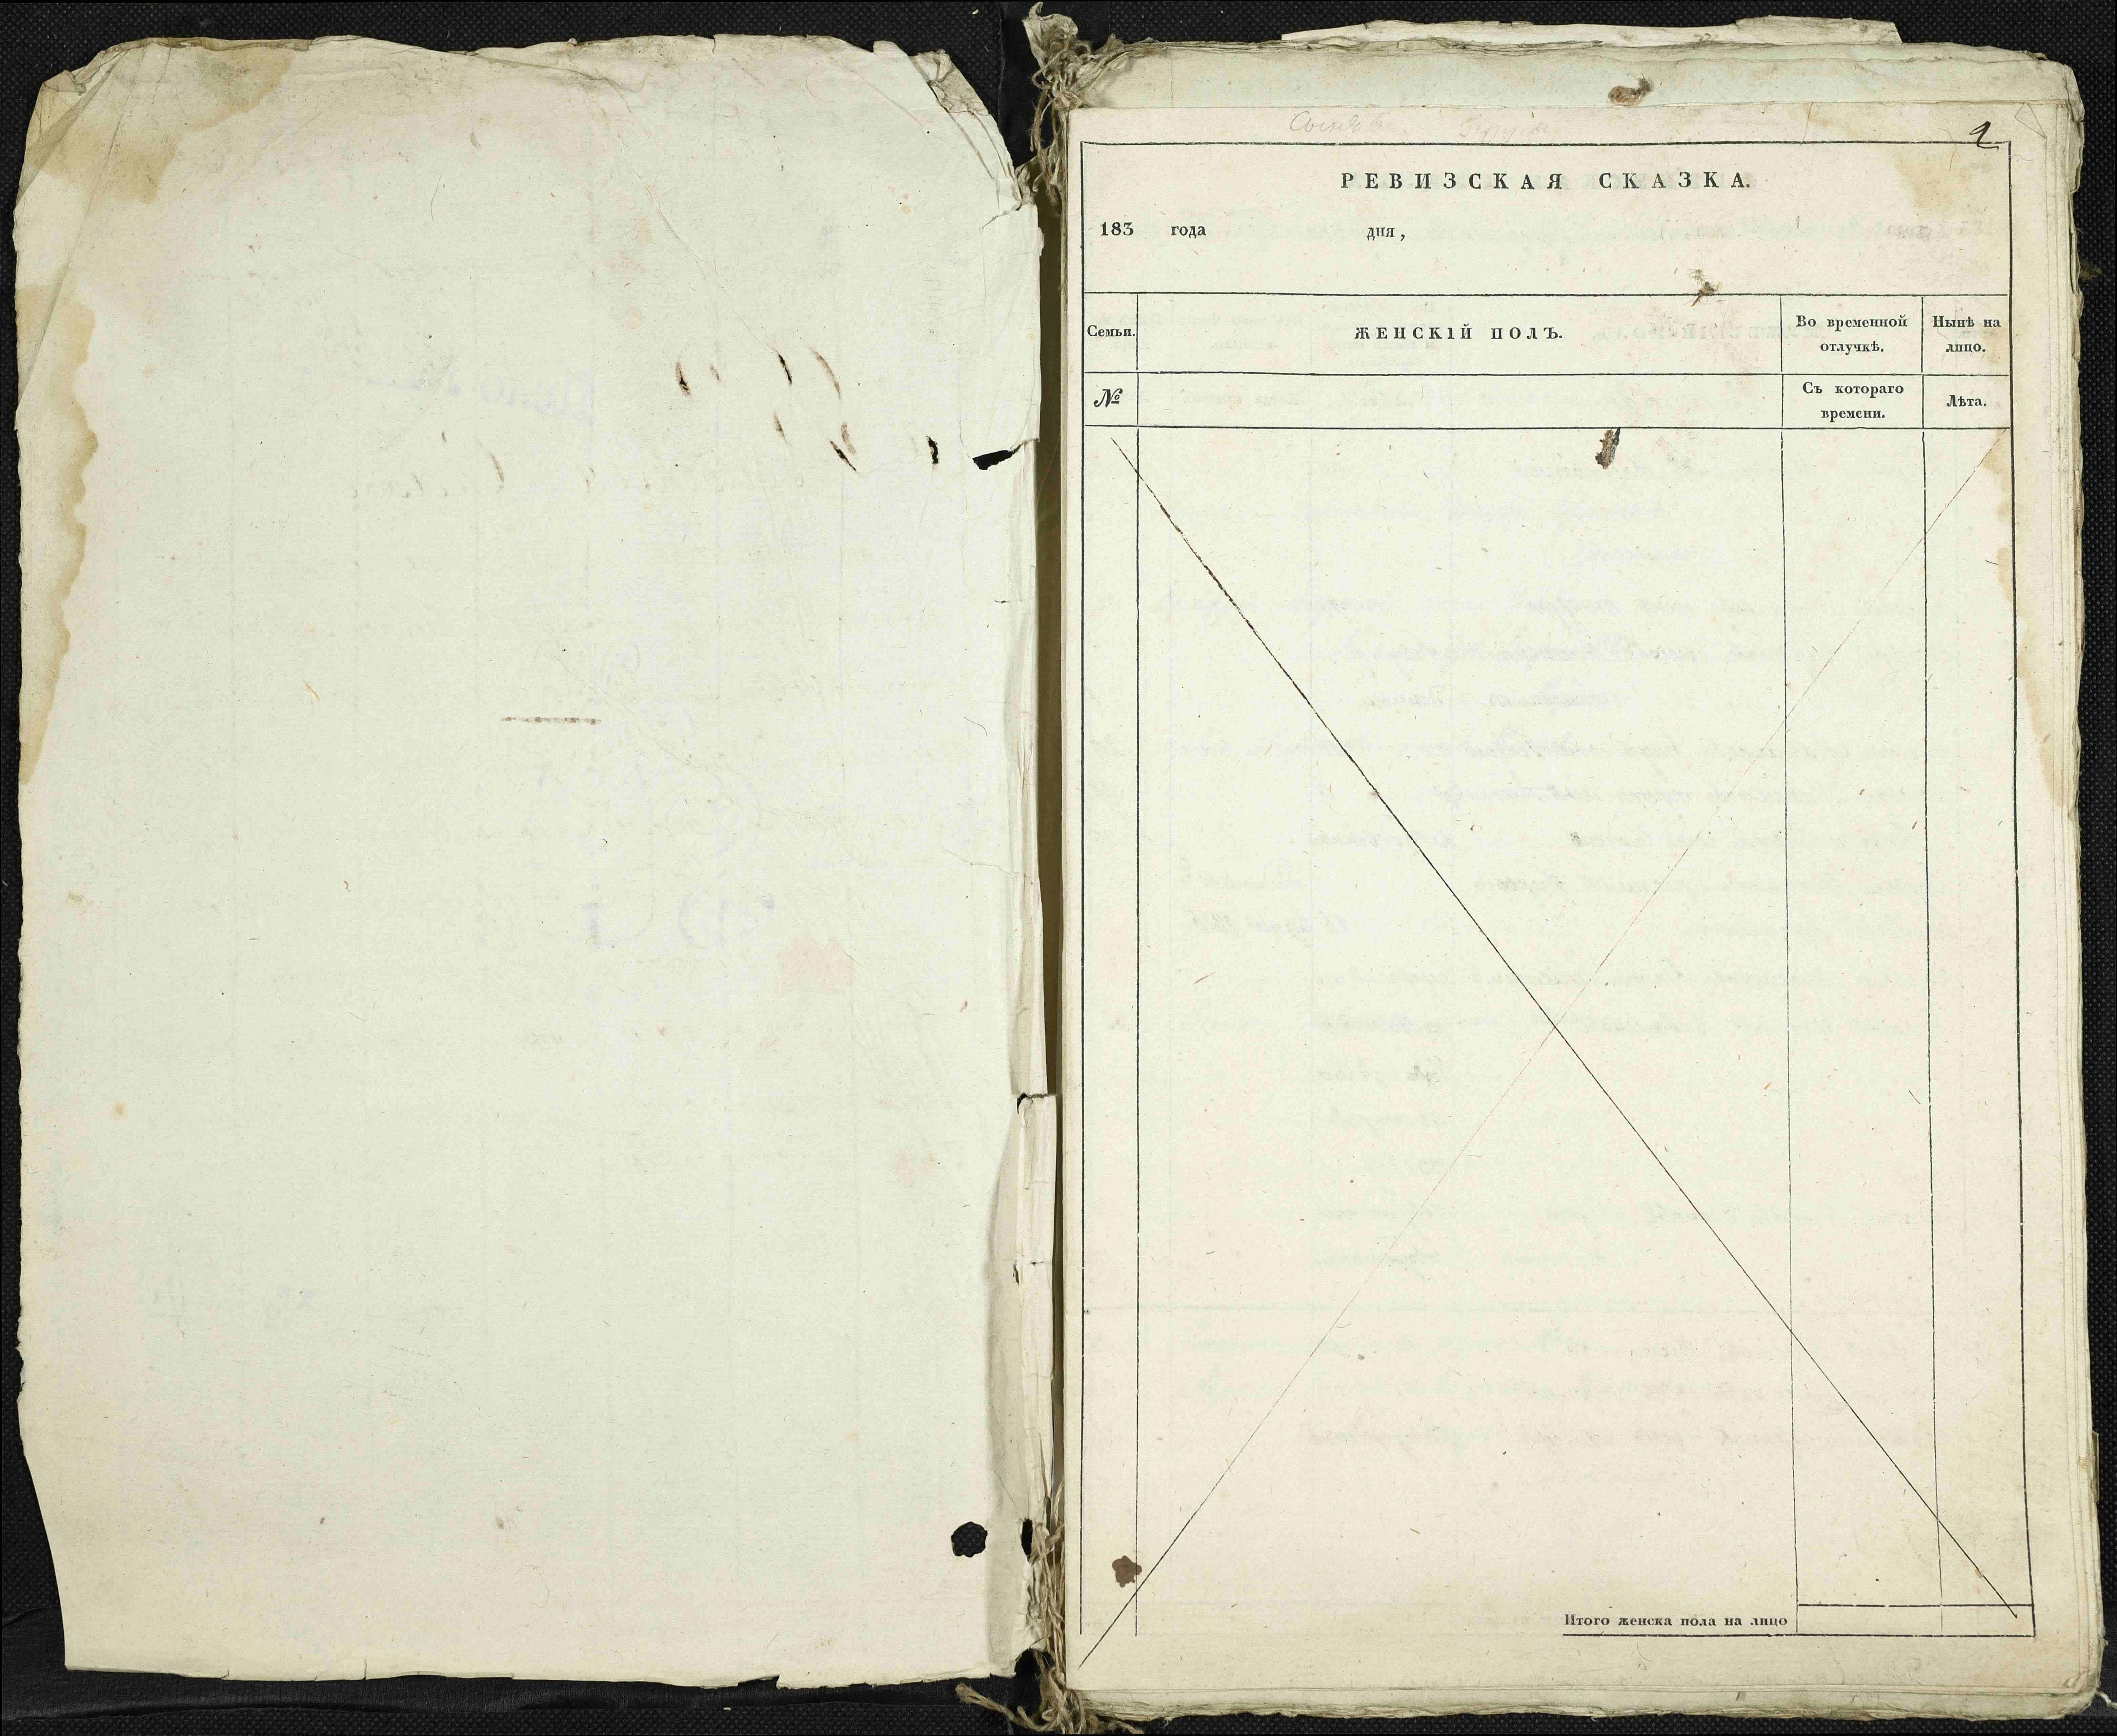 2
РЕВИЗСКАЯ СКАЗКА.
183 года дня,
Семьи. ЖЕНСКІЙ ПОЛЪ. Во временной отлучкѣ. Нынѣ на лицо.
№ Съ котораго времени. Лѣта.
Итого женска пола на лицо